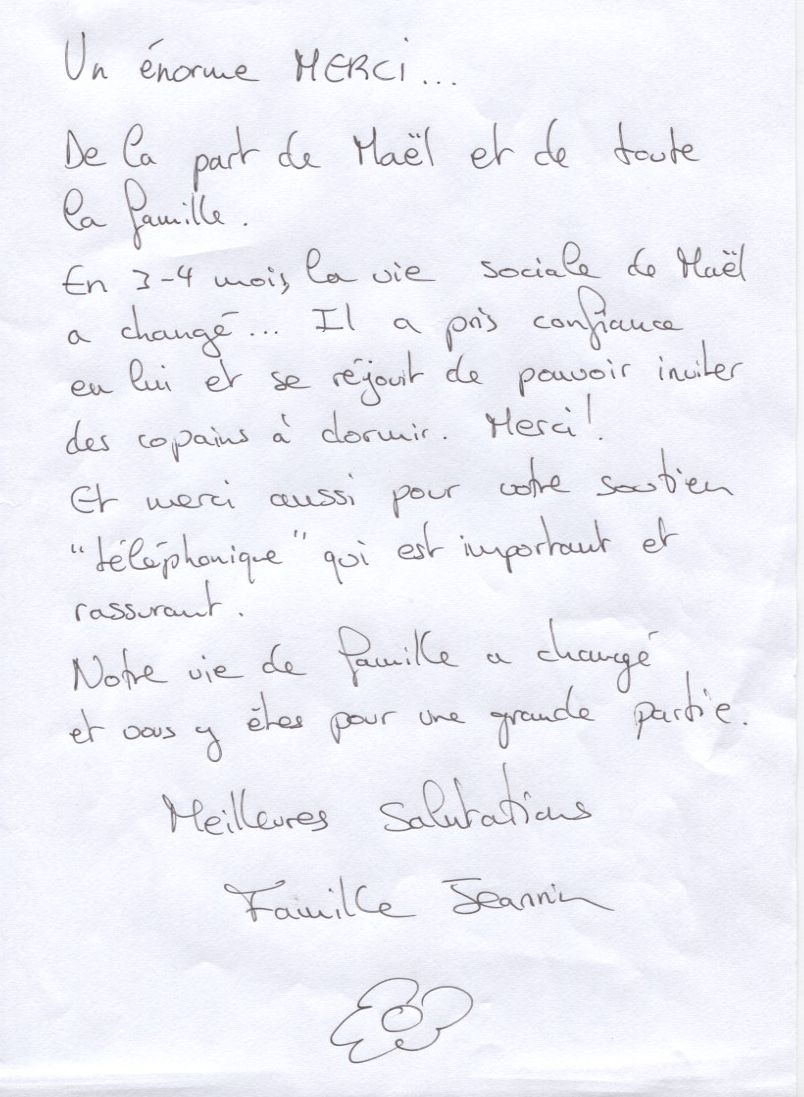 Un énorme MERCI...
De la part de Maël et de toute
la famille.
En 3-4 mois, la vie sociale de Maël
a changé... Il a pris confiance
en lui et se réjouit de pouvoir inviter
des copains à dormir. Merci!
Et merci aussi pour votre soutien
"téléphonique" qui est important et
rassurant.
Notre vie de famille a changé
et vous y êtes pour une grande partie.
Meilleures Salutations
Famille Jeannin